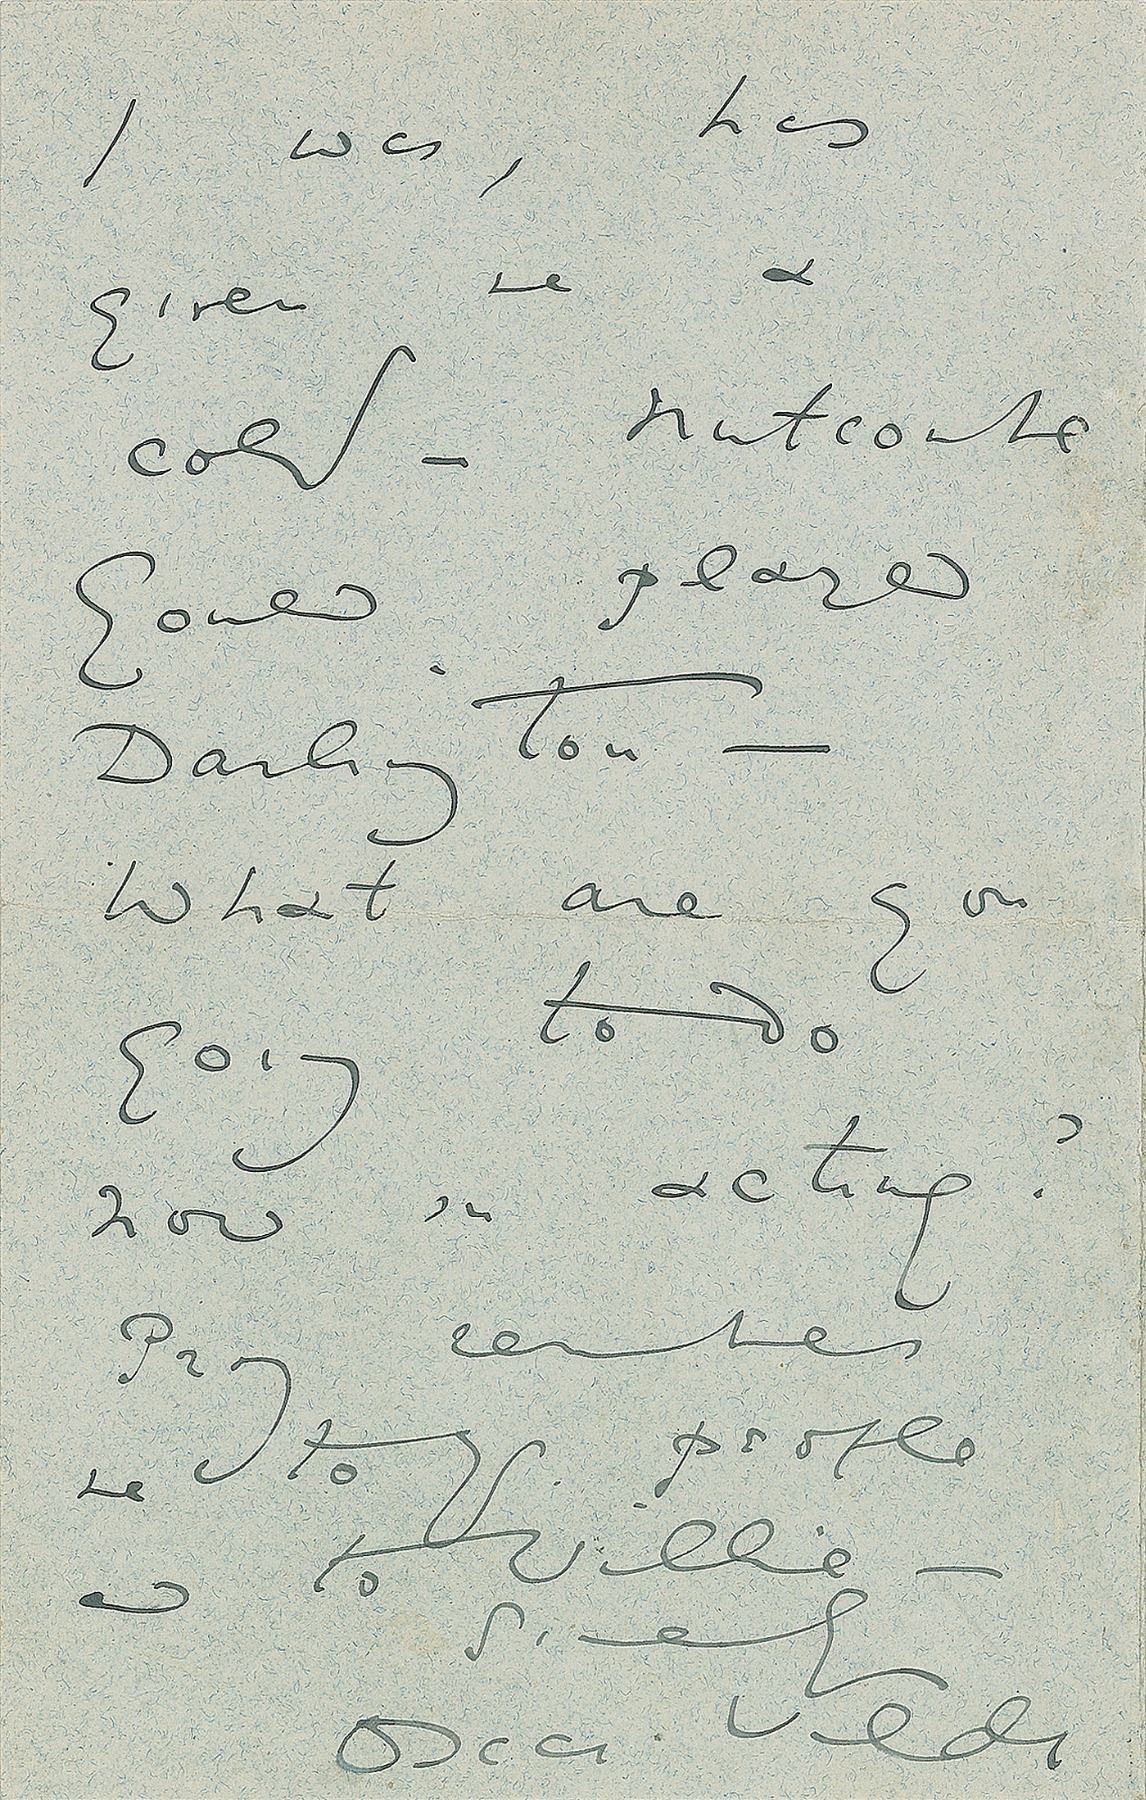 I was, has
given me a
cold – Nutcombe
Gould played
Darlington —
What are you
going to do
now in acting?
Pray remember
me to yr. people
and to Willie —
Sincerely
Oscar Wilde